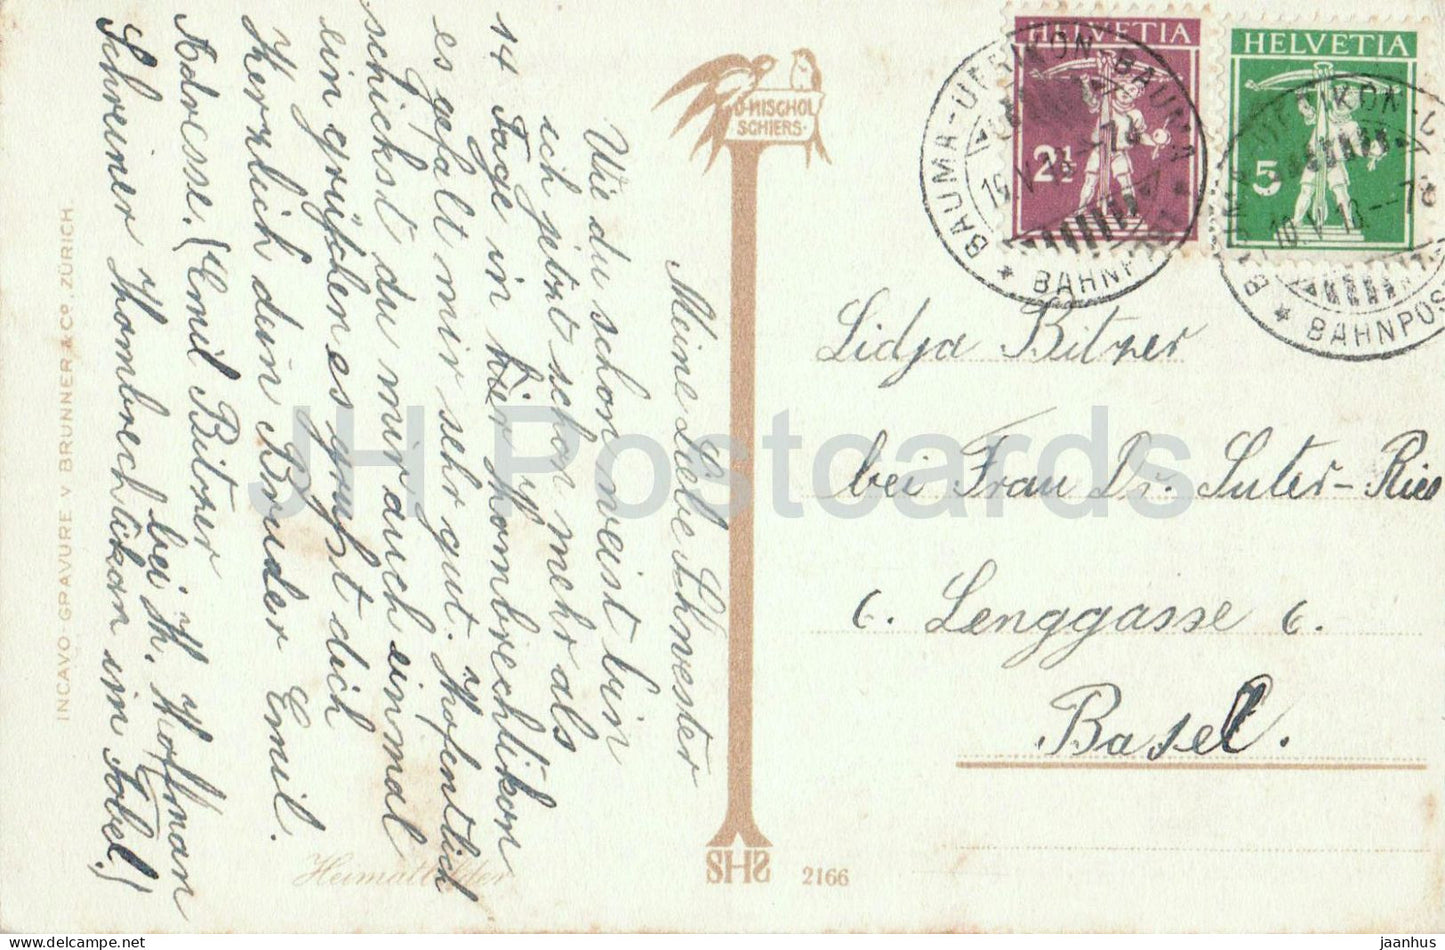 Meine Liebe Schwester
Wie du schon weist bin
ich jetzt schon mehr als
14 Tage in hier Hombrechtikon
es gefalt mir sehr gut. Hofentlich
schickst du mir auch einmal
ein grüschen es grüßt dich
Herzlich dein Bruder Emil.
Adresse. (Emil Bitzer
bei H. Hoffman
Schreiner Hombrechtikon im Tobel.)
D. MISCHOL
SCHIERS
HELVETIA
2½
HELVETIA
5
BAUMA-UERIKON-BAUMA
BAHNPOST
BAHNPOST
Lidja Bitzer
bei Frau Dr. Suter-Ries
6. Lenggasse 6.
Basel.
INCAVO GRAVURE V BRUNNER & Co, ZÜRICH.
Heimatbilder
SHS
2166
JH Postcards
jaanhus @ Delcampe.net